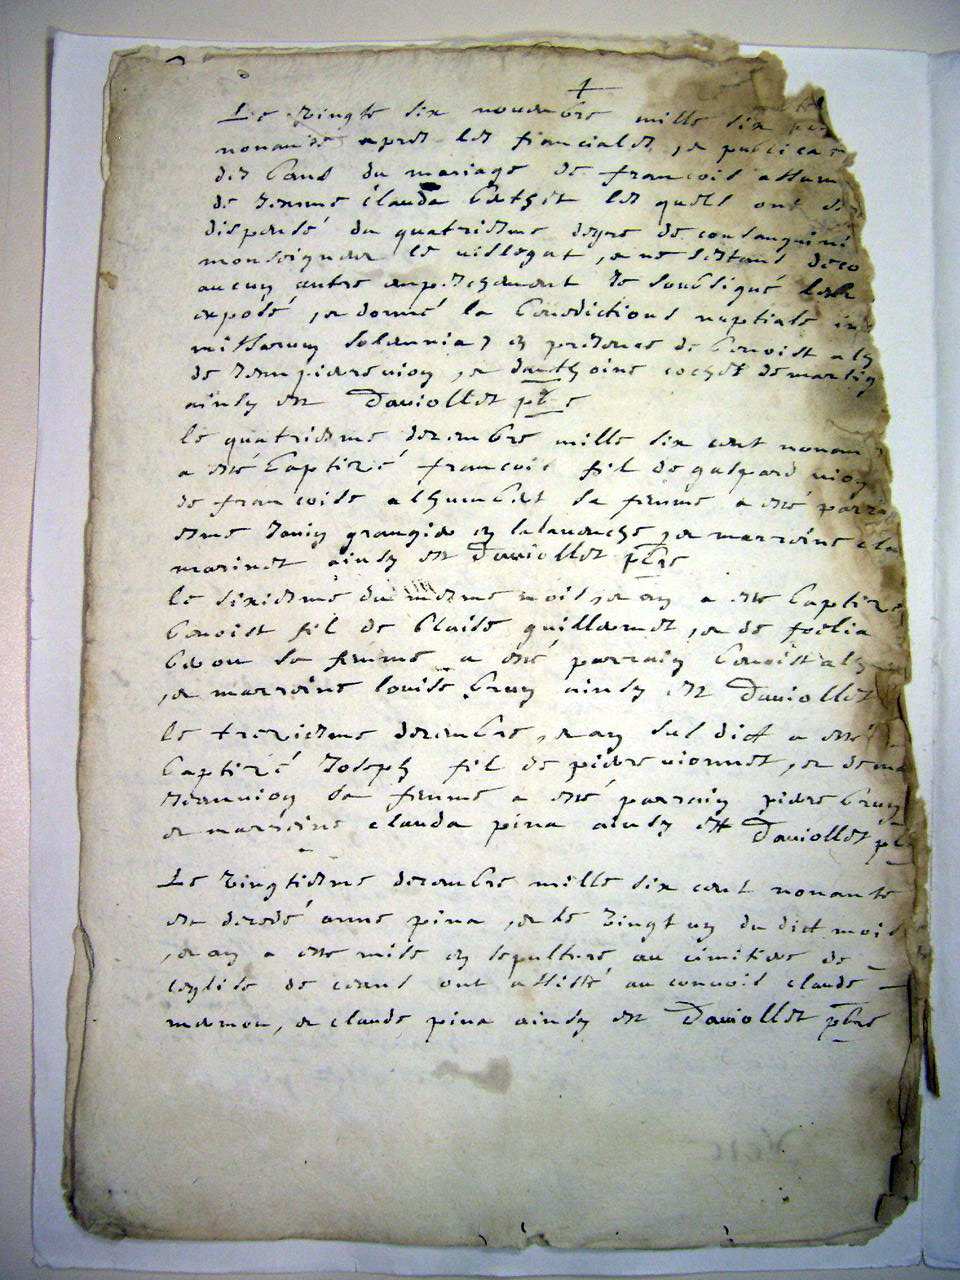 Le vingte six nouembre mille six
nonante apres les fiancialles, et publica
des bans du mariage de francois
de Jeanne Clauda les quels ont
dispensé du quatriesme degre de consanguini
monseigneur le uislegat, et ne s'estant deco
aucun autre empeschement Je soubsigné
exposé, et donné la benedictions nuptiale in
missarum solemnia en presence de benoist
de et danthoine cochet de
ainsy est Dauiollet pbre
le quatriesme decembre mille six cent nonan
a esté baptizé francois fil de gaspard
de francoise sa femme a esté parra
et marreine cla
marinet ainsy est Dauiollet pbre
le sixiesme du mesme mois, et an a esté baptize
benoist fil de Claude guillermet, et de
sa femme a esté parrain benoist
et marreine louise bruy ainsy est Dauiollet
le trezieme decembre, et an susdict a esté
baptizé Joseph fil de pierre uionnet, et de ma
sa femme a esté parrain pierre bruy
et marreine clauda pina ainsy est Dauiollet
Le vingtiesme decembre mille six cent nonante
est decedé anne pina, et le vingt un du dict mois
et an a este mise en sepulture au cimitiere de
leglise de ont assisté au conuois claude
et claude pina ainsy est Dauiollet pbre